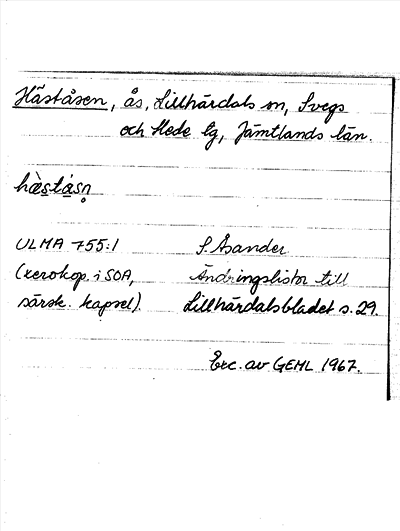 Häståsen, ås, Lillhärdals sn, Svegs
och Hede tg, Jämtlands län.
hæ̀stásn̥
ULMA 755:1 S. Åsander
(xerokop. i SOA, Ändringslistor till
särsk. kapsel). Lillhärdalsbladet s. 29.
Exc. av GEHL 1967.